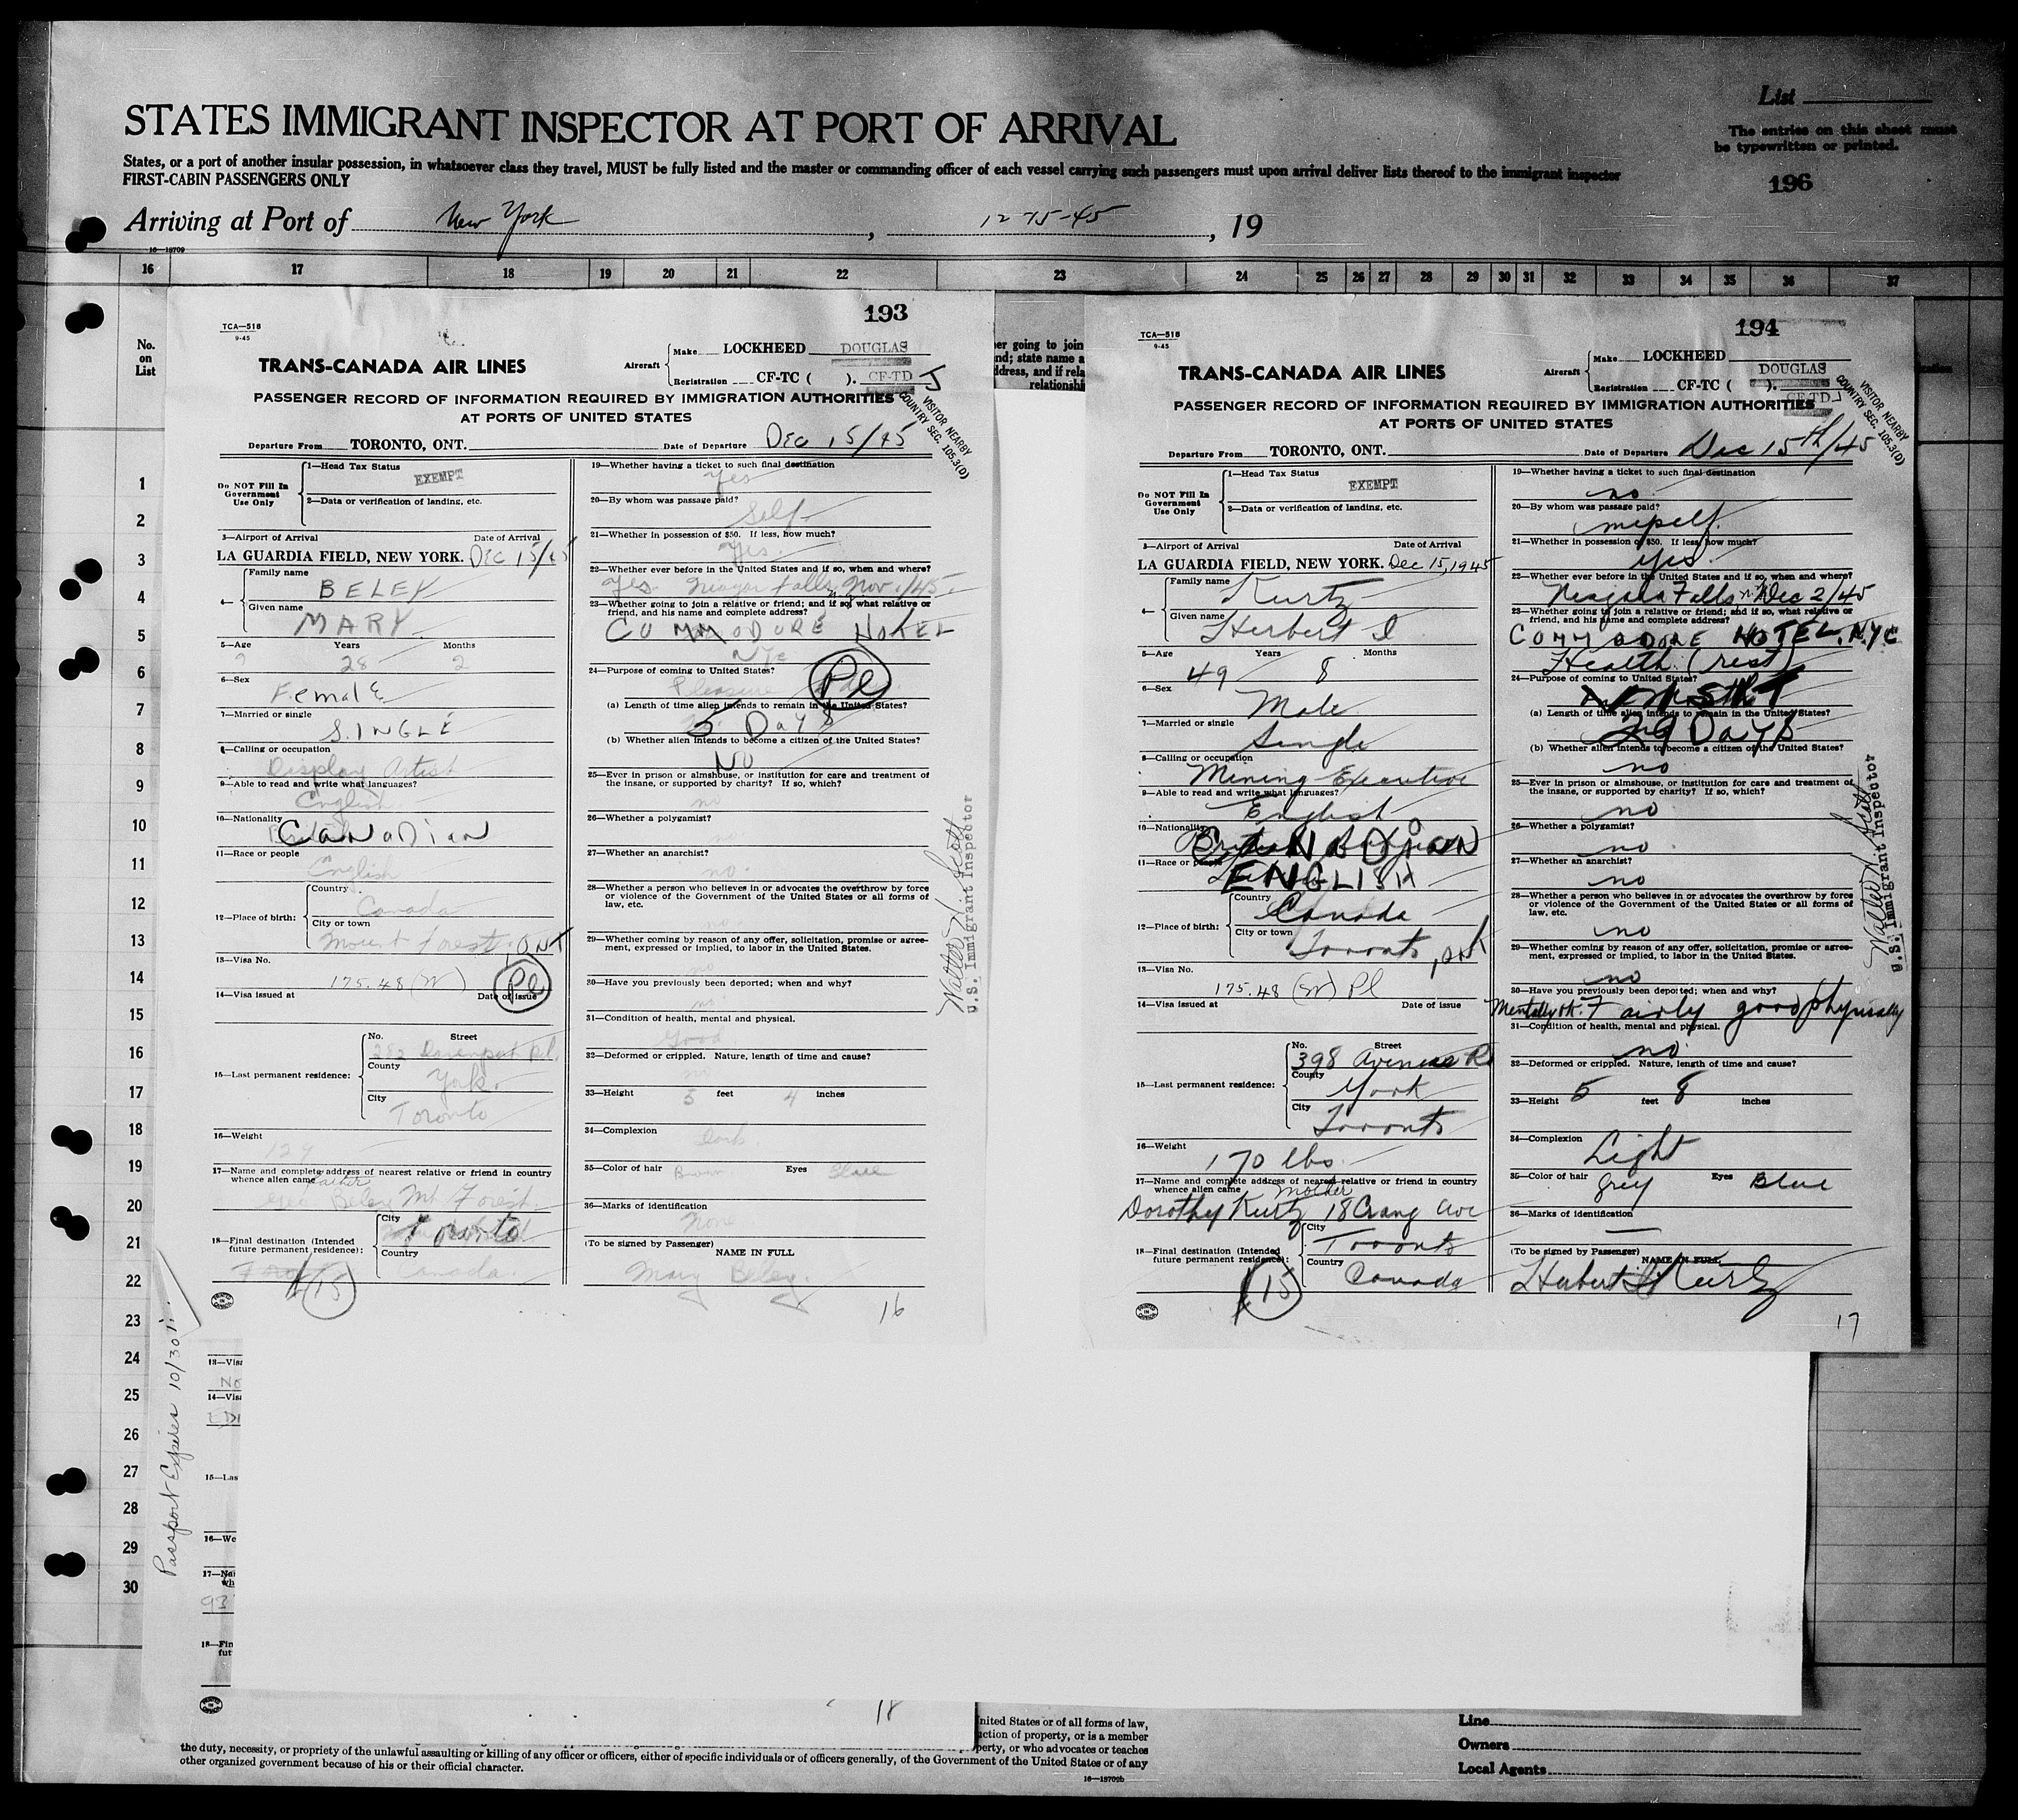 List
STATES IMMIGRANT INSPECTOR AT PORT OF ARRIVAL
The entries on this sheet must
be typewritten or printed.
States, or a port of another insular possession, in whatsoever class they travel, MUST be fully listed and the master or commanding officer of each vessel carrying such passengers must upon arrival deliver lists thereof to the immigrant inspector
FIRST-CABIN PASSENGERS ONLY
196
Arriving at Port of New York, 12-15-45, 19
16—18709
16 17 18 19 20 21 22 23 24 25 26 27 28 29 30 31 32 33 34 35 36 37
No.
on
List
1
2
3
4
5
6
7
8
9
10
11
12
13
14
15
16
17
18
19
20
21
22
23
24
25
26
27
28
29
30
193
TCA—518
9-45
TRANS-CANADA AIR LINES
Aircraft Make LOCKHEED DOUGLAS
Registration CF-TC ( ). CF-TD J
PASSENGER RECORD OF INFORMATION REQUIRED BY IMMIGRATION AUTHORITIES
AT PORTS OF UNITED STATES
VISITOR NEARBY
COUNTRY SEC. 105.3(D)
Departure From TORONTO, ONT. Date of Departure Dec 15/45
Do NOT Fill In
Government
Use Only
1—Head Tax Status EXEMPT
2—Data or verification of landing, etc.
3—Airport of Arrival Date of Arrival
LA GUARDIA FIELD, NEW YORK. DEC 15/45
4— Family name BELEY
Given name MARY
5—Age Years Months
28 2
6—Sex
Female
7—Married or single
SINGLE
8—Calling or occupation
Display Artist
9—Able to read and write what languages?
English
10—Nationality
CANADIAN
11—Race or people
English
12—Place of birth: Country
Canada
City or town
Mount Forest, ONT
13—Visa No.
175.48 (W) Pl
14—Visa issued at Date of issue
15—Last permanent residence: No. Street
Davenport Rd.
County
York
City
Toronto
16—Weight
129
17—Name and complete address of nearest relative or friend in country
whence alien came father
Beley Mt Forest
18—Final destination (Intended
future permanent residence): City
Toronto
Country
Canada
15
19—Whether having a ticket to such final destination
Yes
20—By whom was passage paid?
Self
21—Whether in possession of $50. If less, how much?
Yes
22—Whether ever before in the United States and if so, when and where?
Yes Niagara Falls, NY Nov 1/45
23—Whether going to join a relative or friend; and if so, what relative or
friend, and his name and complete address?
COMMODORE HOTEL
NYC
24—Purpose of coming to United States?
Pleasure Pl
(a) Length of time alien intends to remain in the United States?
5 Days
(b) Whether alien intends to become a citizen of the United States?
NO
25—Ever in prison or almshouse, or institution for care and treatment of
the insane, or supported by charity? If so, which?
no
26—Whether a polygamist?
no
27—Whether an anarchist?
no
28—Whether a person who believes in or advocates the overthrow by force
or violence of the Government of the United States or all forms of
law, etc.
no
29—Whether coming by reason of any offer, solicitation, promise or agree-
ment, expressed or implied, to labor in the United States.
no
30—Have you previously been deported; when and why?
no
31—Condition of health, mental and physical.
Good
32—Deformed or crippled. Nature, length of time and cause?
no
33—Height 5 feet 4 inches
34—Complexion
Dark
35—Color of hair Brown Eyes
36—Marks of identification
None
(To be signed by Passenger) NAME IN FULL
Mary Beley
16
Walter N. Scott
U.S. Immigrant Inspector
er going to join
nd; state name a
ddress, and if rela
relationshi
194
TCA—518
9-45
TRANS-CANADA AIR LINES
Aircraft Make LOCKHEED
DOUGLAS
Registration CF-TC ( ). CF-TDJ
PASSENGER RECORD OF INFORMATION REQUIRED BY IMMIGRATION AUTHORITIES
AT PORTS OF UNITED STATES
VISITOR NEARBY
COUNTRY SEC. 105.3(D)
Departure From TORONTO, ONT. Date of Departure Dec 15th/45
Do NOT Fill In
Government
Use Only
1—Head Tax Status
EXEMPT
2—Data or verification of landing, etc.
3—Airport of Arrival Date of Arrival
LA GUARDIA FIELD, NEW YORK. Dec 15, 1945
4— Family name Kurtz
Given name Herbert I
5—Age Years Months
49 8
6—Sex
Male
7—Married or single
Single
8—Calling or occupation
Mining Executive
9—Able to read and write what languages?
English
10—Nationality
CANADIAN
11—Race or people
ENGLISH
12—Place of birth: Country
Canada
City or town
Toronto, Ont
13—Visa No.
175.48 (W) Pl
14—Visa issued at Date of issue
15—Last permanent residence: No. Street
398 Avenue Rd
County
York
City
Toronto
16—Weight
170 lbs.
17—Name and complete address of nearest relative or friend in country
whence alien came mother
Dorothy Kurtz 18 Crang Ave
18—Final destination (Intended
future permanent residence): City
Toronto
Country
Canada
15
19—Whether having a ticket to such final destination
no
20—By whom was passage paid?
myself
21—Whether in possession of $50. If less, how much?
yes
22—Whether ever before in the United States and if so, when and where?
Niagara Falls NY Dec 2/45
23—Whether going to join a relative or friend; and if so, what relative or
friend, and his name and complete address?
COMMODORE HOTEL, N.Y.C
Health (rest)
24—Purpose of coming to United States?
(a) Length of time alien intends to remain in the United States?
29 Days
(b) Whether alien intends to become a citizen of the United States?
no
25—Ever in prison or almshouse, or institution for care and treatment of
the insane, or supported by charity? If so, which?
no
26—Whether a polygamist?
no
27—Whether an anarchist?
no
28—Whether a person who believes in or advocates the overthrow by force
or violence of the Government of the United States or all forms of
law, etc.
no
29—Whether coming by reason of any offer, solicitation, promise or agree-
ment, expressed or implied, to labor in the United States.
no
30—Have you previously been deported; when and why?
Mentally ok. Fairly good physically
31—Condition of health, mental and physical.
no
32—Deformed or crippled. Nature, length of time and cause?
33—Height 5 feet 8 inches
34—Complexion
Light
35—Color of hair grey Eyes Blue
36—Marks of identification
—
(To be signed by Passenger) NAME IN FULL
Herbert I Kurtz
17
Walter N. Scott
U.S. Immigrant Inspector
Passport Expires 10/30
13—Visa
No
14—Visa
15—Las
16—We
17—Na
wh
93
18—Fin
fut
18
nited States or of all forms of law,
uction of property, or is a member
perty, or who advocates or teaches
the duty, necessity, or propriety of the unlawful assaulting or killing of any officer or officers, either of specific individuals or of officers generally, of the Government of the United States or of any
other organized government because of his or their official character.
16—18709b
Line
Owners
Local Agents